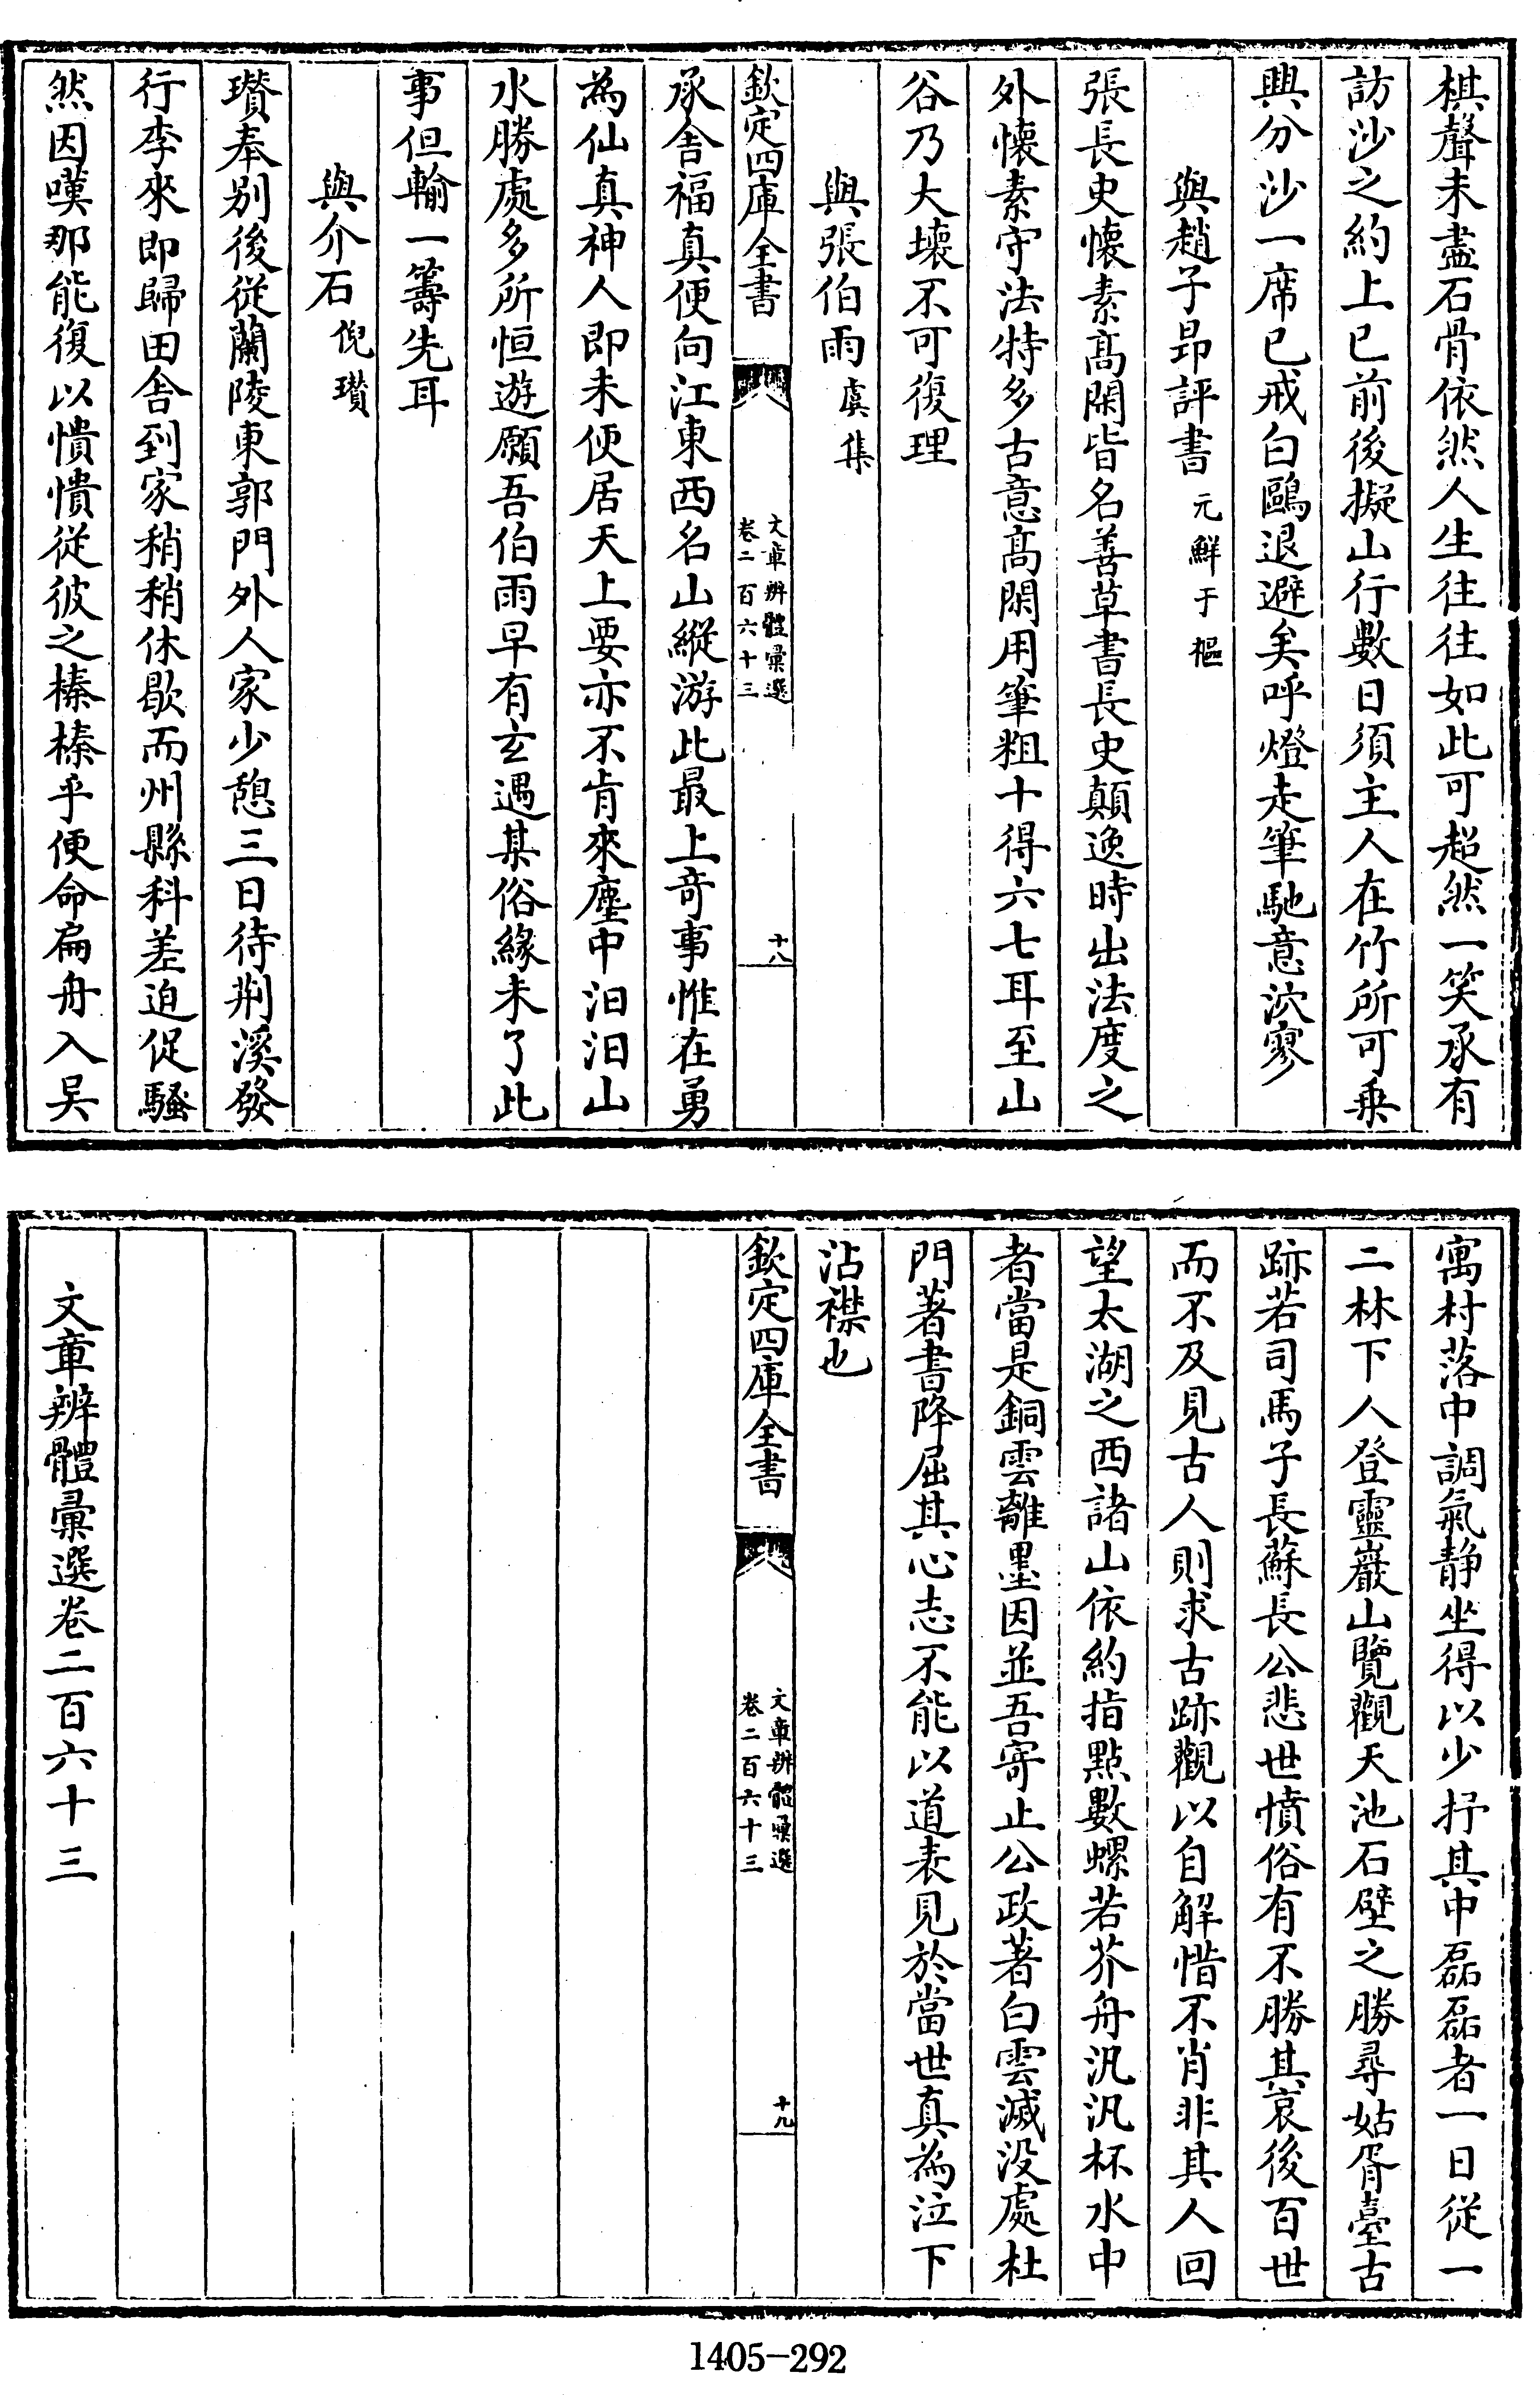 棋聲未盡石骨依然人生往往如此可超然一笑承有
訪沙之約上已前後擬山行數日須主人在竹所可乗
興分沙一席已戒白鷗退避矣呼燈走筆馳意泬寥
與趙子昻評書元鮮于樞
張長史懐素髙閑皆名善草書長史顛逸時出法度之
外懐素守法特多古意髙閑用筆粗十得六七耳至山
谷乃大壊不可復理
與張伯雨虞集
欽定四庫全書
文章辨體彙選
卷二百六十三
十八
承舍福真便向江東西名山縱游此最上竒事惟在勇
為仙真神人即未便居天上要亦不肯來塵中汨汨山
水勝處多所恒遊願吾伯雨早有玄遇某俗緣未了此
事但輸一籌先耳
與介石倪瓚
瓚奉别後從蘭陵東郭門外人家少憩三日待荆溪發
行李來即歸田舍到家稍稍休歇而州縣科差迫促騷
然因嘆那能復以憒憒從彼之榛榛乎便命扁舟入吴
寓村落中調氣静坐得以少抒其中磊磊者一日從一
二林下人登靈巖山覽觀天池石壁之勝尋姑胥臺古
跡若司馬子長蘇長公悲世憤俗有不勝其哀後百世
而不及見古人則求古跡觀以自解惜不肖非其人回
望太湖之西諸山依約指點數螺若芥舟汎汎杯水中
者當是銅雲離墨因並吾寄止公政著白雲滅没處杜
門著書降屈其心志不能以道表見於當世真為泣下
沾襟也
欽定四庫全書
文章辨體彙選
卷二百六十三
十九
文章辨體彙選卷二百六十三
1405-292